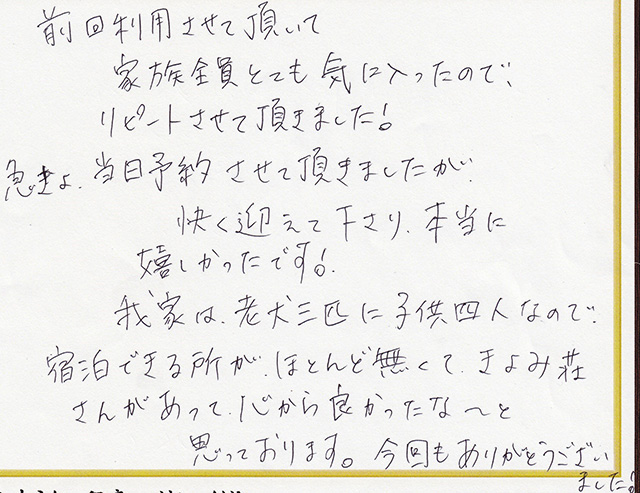 前回利用させて頂いて
家族全員とても気に入ったので、
リピートさせて頂きました!
急きょ、当日予約させて頂きましたが、
快く迎えて下さり、本当に
嬉しかったです!
我家は、老犬三匹に子供四人なので、
宿泊できる所が、ほとんど無くて、きよみ荘
さんがあって、心から良かったな〜と
思っております。今回もありがとうござい
ました!